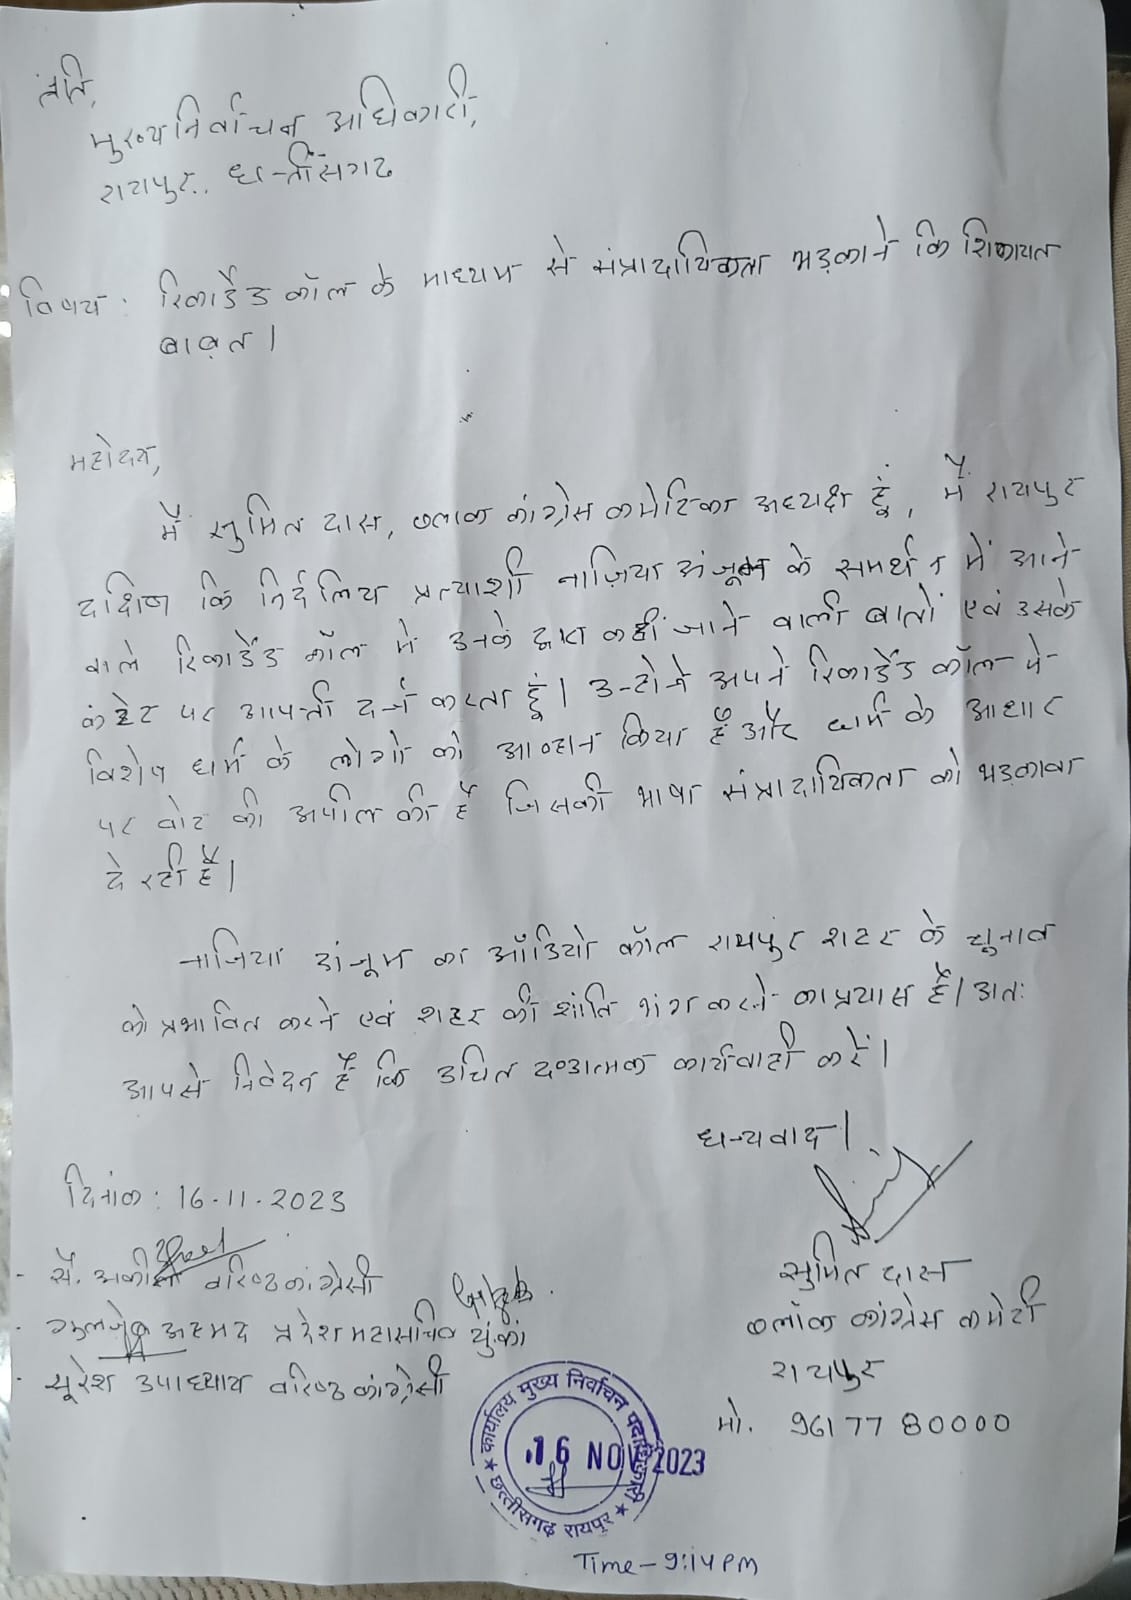 प्रति,
मुख्य निर्वाचन अधिकारी,
रायपुर, छत्तीसगढ
विषय : रिकार्डेड कॉल के माध्यम से संप्रादायिकता भड़काने कि शिकायत
बाबत।
महोदय,
मैं सुमित दास, ब्लाक कांग्रेस कमेटि का अध्यक्ष हूं, मैं रायपुर
दक्षिण कि निर्दलिय प्रत्याशी नाज़िया अंजूम के समर्थन में आने
वाले रिकार्डेड कॉल में उनके द्वारा कही जाने वाली बातों एवं उसके
कंटेट पर आपत्ती दर्ज करता हूं। उन्होने अपने रिकार्डेड कॉल मे
विशेष धर्म के लोगो को आव्हान किया हैं और धर्म के आधार
पर वोट की अपील की है जिसकी भाषा संप्रादायिकता को भड़कावा
दे रही है।
नाजिया अंजूम का ऑडियो कॉल रायपुर शहर के चुनाव
को प्रभावित करने एवं शहर की शांति भंग करने का प्रयास है। अतः
आपसे निवेदन हैं कि उचित दण्डात्मक कार्यवाही करें।
धन्यवाद।
दिनांक : 16.11.2023
सुमित दास
ब्लॉक कांग्रेस कमेटी
रायपुर
मो. 9617780000
- सै. अकील वरिष्ठ कांग्रेसी
- अहमद प्रदेश महासचिव युं.कां
- सूरेश उपाध्याय वरिष्ठ कांग्रेसी
कार्यालय मुख्य निर्वाचन पदाधिकारी
16 NOV 2023
छत्तीसगढ़ रायपुर
Time - 9:14 PM